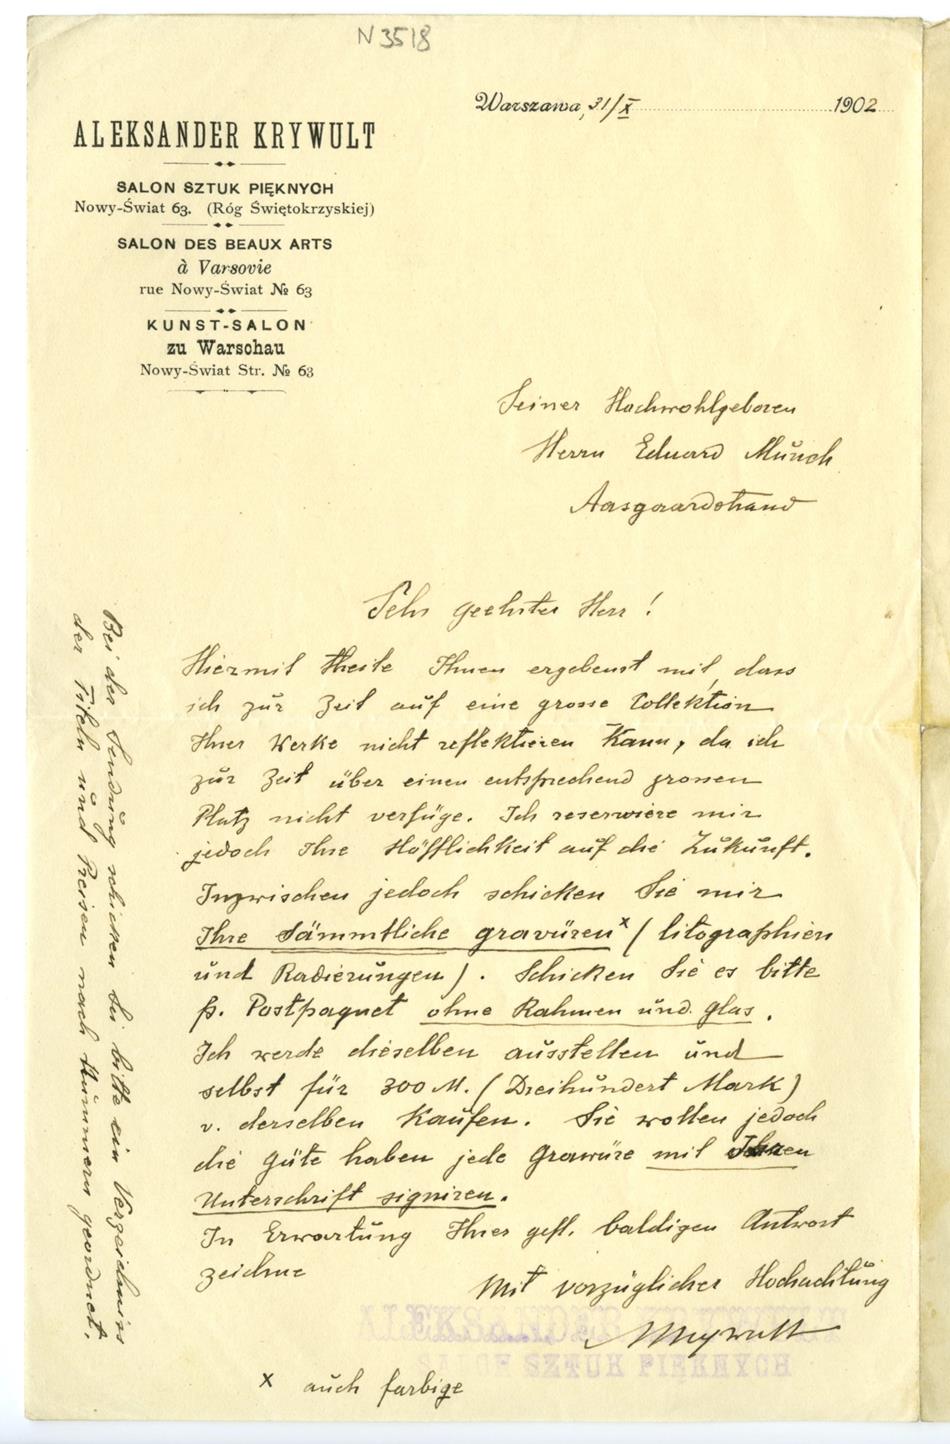 N 3518
Warszawa, 31/X 1902
ALEKSANDER KRYWULT
SALON SZTUK PIĘKNYCH
Nowy-Świat 63. (Róg Świętokrzyskiej)
SALON DES BEAUX ARTS
à Varsovie
rue Nowy-Świat № 63
KUNST-SALON
zu Warschau
Nowy-Świat Str. № 63
Seiner Hochwohlgeboren
Herrn Eduard Munch
Aasgaardstrand
Sehr geehrter Herr!
Hiermit theile Ihnen ergebenst mit, dass
ich zur Zeit auf eine grosse Collektion
Ihrer Werke nicht reflektieren kann, da ich
zur Zeit über einen entsprechend grossen
Platz nicht verfüge. Ich reserwiere mir
jedoch Ihre Höfflichkeit auf die Zukunft.
Inzwischen jedoch schicken Sie mir
Ihre sämmtliche gravüren x (litographien
und Radierungen). Schicken Sie es bitte
p. Postpaquet ohne Rahmen und glas.
Ich werde dieselben ausstellen und
selbst für 300 M. (Dreihundert Mark)
v. derselben kaufen. Sie wollen jedoch
die Güte haben jede Grawüre mit Ihren
Unterschrift signiren.
In Erwartung Ihrer gefl. baldigen Antwort
zeichne
Mit vorzüglicher Hochachtung
AKrywult
ALEKSANDER KRYWULT
SALON SZTUK PIĘKNYCH
x auch farbige
Bei der Sendung schicken Sie bitte ein Vergeichniss
der Titeln und Preisen nach Nummern geordnet.